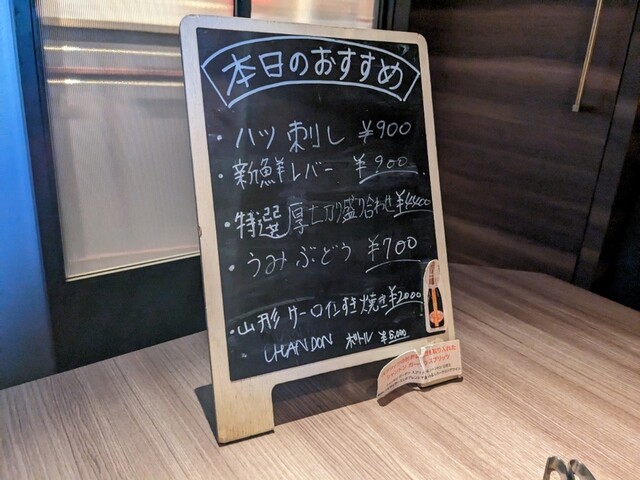 本日のおすすめ
・ハツ刺し ¥900
・新鮮レバー ¥900
・特選厚切り盛り合わせ ¥4400
・うみぶどう ¥700
・山形サーロインすき焼き ¥2000
CHANDON ボトル ¥8,000